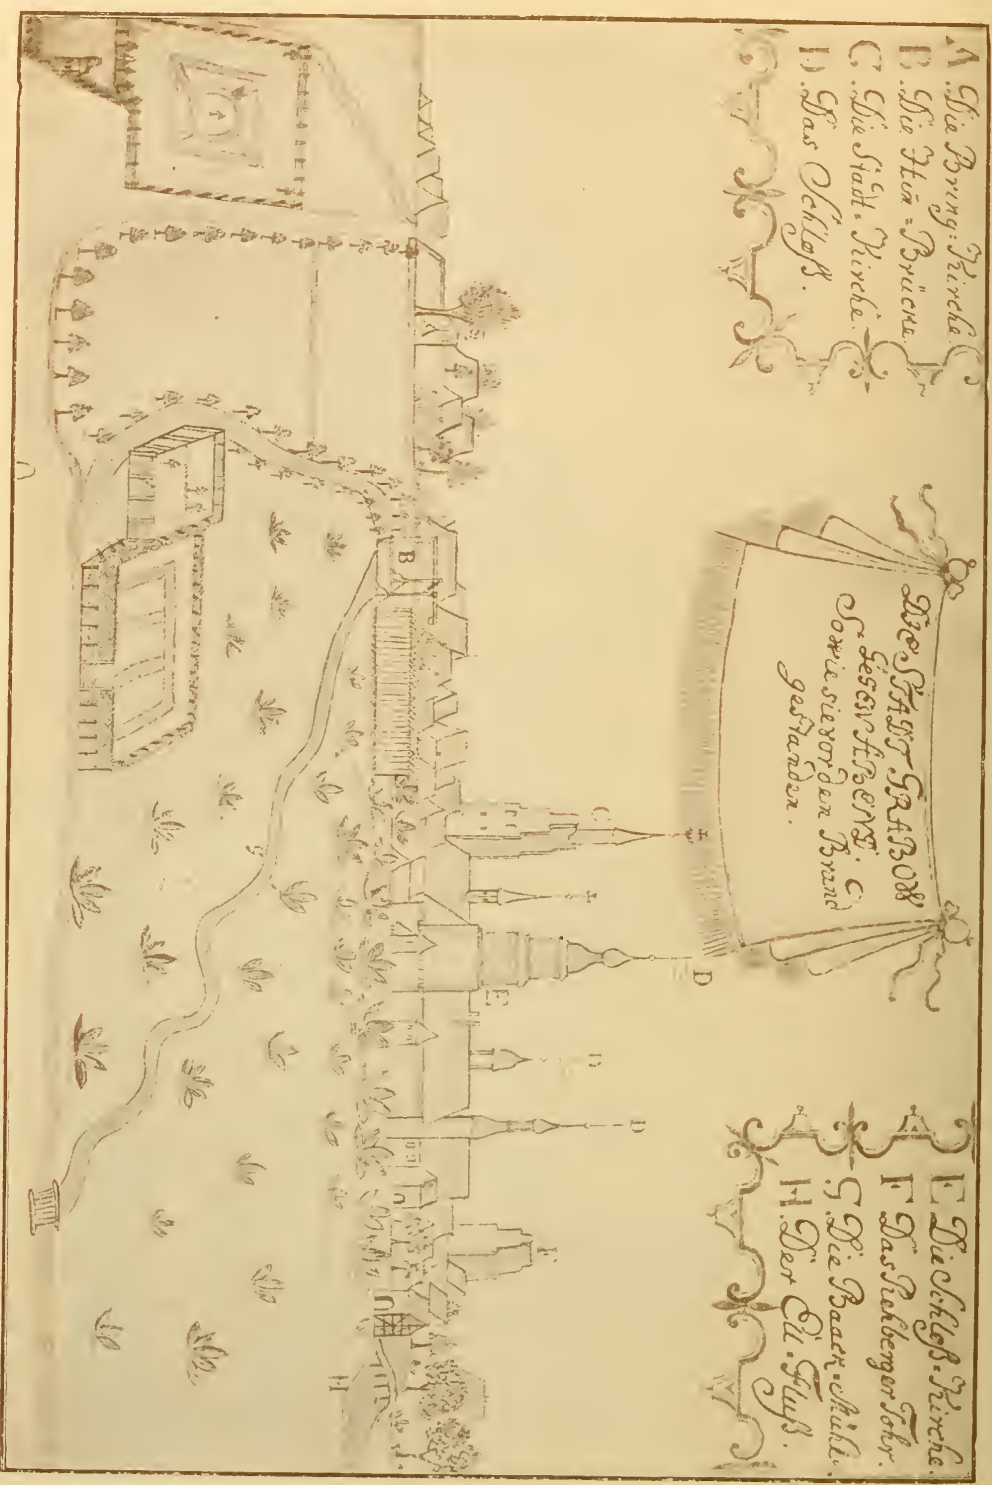 A. Die Bring: Kirche.
B. Die Hün = Brücke
C. Die Stadt. Kirche.
D. Das Schloß.
Die STADT GRABOW
GEGEN ABENT.
So wie sie vor den Brand
gestanden.
E Die Schloß. Kirche.
F Das Rehberger Tohr.
G. Die Baack. Mühl.
H. Der Eld. Fluß.
C
D
E
D
D
F
B
H